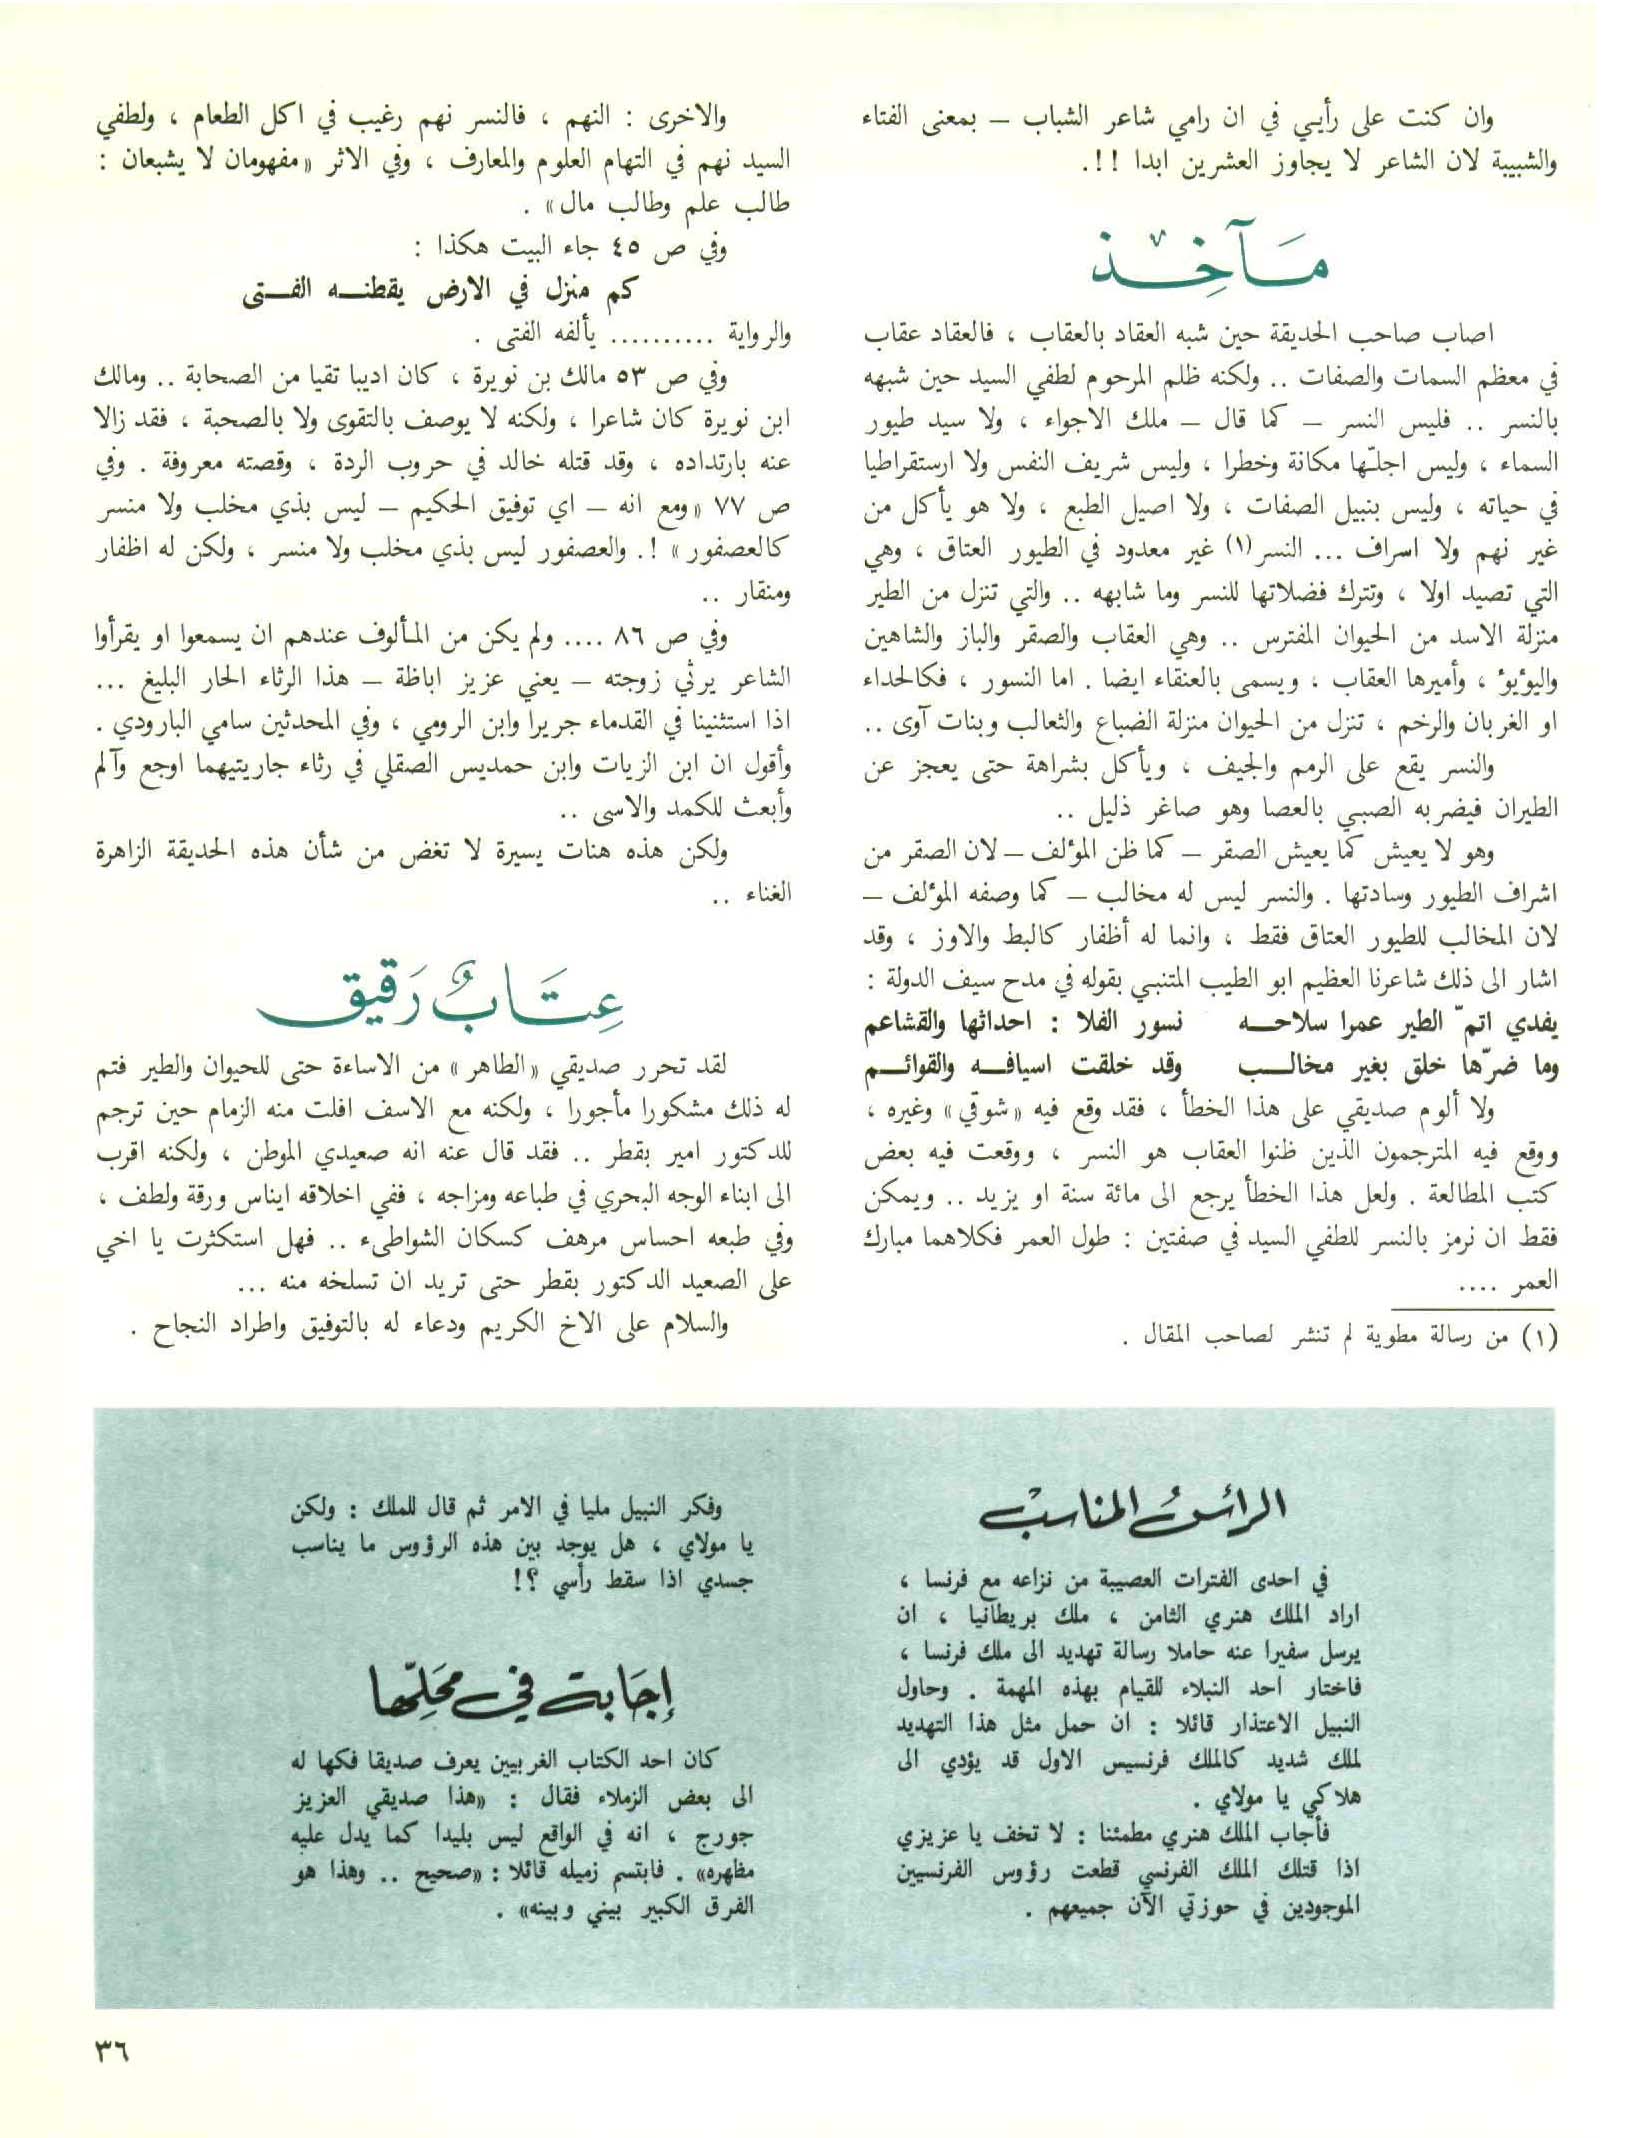 وان كنت على رأيي في ان رامي شاعر الشباب – بمعنى الفتاء
والشبيبة لان الشاعر لا يجاوز العشرين ابدا !!.
مآخذ
اصاب صاحب الحديقة حين شبه العقاد بالعقاب ، فالعقاد عقاب
في معظم السمات والصفات .. ولكنه ظلم المرحوم لطفي السيد حين شبهه
بالنسر .. فليس النسر – كما قال – ملك الاجواء ، ولا سيد طيور
السماء ، وليس اجلّها مكانة وخطرا ، وليس شريف النفس ولا ارستقراطيا
في حياته ، وليس بنبيل الصفات ، ولا اصيل الطبع ، ولا هو يأكل من
غير نهم ولا اسراف ... النسر(١) غير معدود في الطيور العتاق ، وهي
التي تصيد اولا ، وتترك فضلاتها للنسر وما شابهه .. والتي تنزل من الطير
منزلة الاسد من الحيوان المفترس .. وهي العقاب والصقر والباز والشاهين
واليؤيؤ ، وأميرها العقاب ، ويسمى بالعنقاء ايضا . اما النسور ، فكالحداء
او الغربان والرخم ، تنزل من الحيوان منزلة الضباع والثعالب وبنات آوى ..
والنسر يقع على الرمم والجيف ، ويأكل بشراهة حتى يعجز عن
الطيران فيضربه الصبي بالعصا وهو صاغر ذليل ..
وهو لا يعيش كما يعيش الصقر – كما ظن المؤلف – لان الصقر من
اشراف الطيور وسادتها . والنسر ليس له مخالب – كما وصفه المؤلف –
لان المخالب للطيور العتاق فقط ، وانما له أظفار كالبط والاوز ، وقد
اشار الى ذلك شاعرنا العظيم ابو الطيب المتنبي بقوله في مدح سيف الدولة :
يفدي اتمّ الطير عمرا سلاحـــه نسور الفلا : احداثها والقشاعم
وما ضرّها خلق بغير مخالـــب وقد خلقت اسيافـــه والقوائـــم
ولا ألوم صديقي على هذا الخطأ ، فقد وقع فيه «شوقي» وغيره ،
ووقع فيه المترجمون الذين ظنوا العقاب هو النسر ، ووقعت فيه بعض
كتب المطالعة . ولعل هذا الخطأ يرجع الى مائة سنة او يزيد .. ويمكن
فقط ان نرمز بالنسر للطفي السيد في صفتين : طول العمر فكلاهما مبارك
العمر ....
(١) من رسالة مطوية لم تنشر لصاحب المقال .
والاخرى : النهم ، فالنسر نهم رغيب في اكل الطعام ، ولطفي
السيد نهم في التهام العلوم والمعارف ، وفي الاثر «مفهومان لا يشبعان :
طالب علم وطالب مال» .
وفي ص ٤٥ جاء البيت هكذا :
كم منزل في الارض يقطنـــه الفـــتى
والرواية .......... يألفه الفتى .
وفي ص ٥٣ مالك بن نويرة ، كان اديبا تقيا من الصحابة .. ومالك
ابن نويرة كان شاعرا ، ولكنه لا يوصف بالتقوى ولا بالصحبة ، فقد زالا
عنه بارتداده ، وقد قتله خالد في حروب الردة ، وقصته معروفة . وفي
ص ٧٧ «ومع انه – اي توفيق الحكيم – ليس بذي مخلب ولا منسر
كالعصفور» !. والعصفور ليس بذي مخلب ولا منسر ، ولكن له اظفار
ومنقار ..
وفي ص ٨٦ .... ولم يكن من المألوف عندهم ان يسمعوا او يقرأوا
الشاعر يرثي زوجته – يعني عزيز اباظة – هذا الرثاء الحار البليغ ...
اذا استثنينا في القدماء جريرا وابن الرومي ، وفي المحدثين سامي البارودي .
وأقول ان ابن الزيات وابن حمديس الصقلي في رثاء جاريتيهما اوجع وآلم
وأبعث للكمد والاسى ..
ولكن هذه هنات يسيرة لا تغض من شأن هذه الحديقة الزاهرة
الغناء ..
عتاب رقيق
لقد تحرر صديقي «الطاهر» من الاساءة حتى للحيوان والطير فتم
له ذلك مشكورا مأجورا ، ولكنه مع الاسف افلت منه الزمام حين ترجم
للدكتور امير بقطر .. فقد قال عنه انه صعيدي الموطن ، ولكنه اقرب
الى ابناء الوجه البحري في طباعه ومزاجه ، ففي اخلاقه ايناس ورقة ولطف ،
وفي طبعه احساس مرهف كسكان الشواطىء .. فهل استكثرت يا اخي
على الصعيد الدكتور بقطر حتى تريد ان تسلخه منه ...
والسلام على الاخ الكريم ودعاء له بالتوفيق واطراد النجاح .
الرأس المناسب
في احدى الفترات العصيبة من نزاعه مع فرنسا ،
اراد الملك هنري الثامن ، ملك بريطانيا ، ان
يرسل سفيرا عنه حاملا رسالة تهديد الى ملك فرنسا ،
فاختار احد النبلاء للقيام بهذه المهمة . وحاول
النبيل الاعتذار قائلا : ان حمل مثل هذا التهديد
لملك شديد كالملك فرنسيس الاول قد يؤدي الى
هلاكي يا مولاي .
فأجاب الملك هنري مطمئنا : لا تخف يا عزيزي
اذا قتلك الملك الفرنسي قطعت رؤوس الفرنسيين
الموجودين في حوزتي الآن جميعهم .
وفكر النبيل مليا في الامر ثم قال للملك : ولكن
يا مولاي ، هل يوجد بين هذه الرؤوس ما يناسب
جسدي اذا سقط رأسي ؟!
إجابة في محلّها
كان احد الكتاب الغربيين يعرف صديقا فكها له
الى بعض الزملاء فقال : «هذا صديقي العزيز
جورج ، انه في الواقع ليس بليدا كما يدل عليه
مظهره» . فابتسم زميله قائلا : «صحيح .. وهذا هو
الفرق الكبير بيني وبينه» .
٣٦